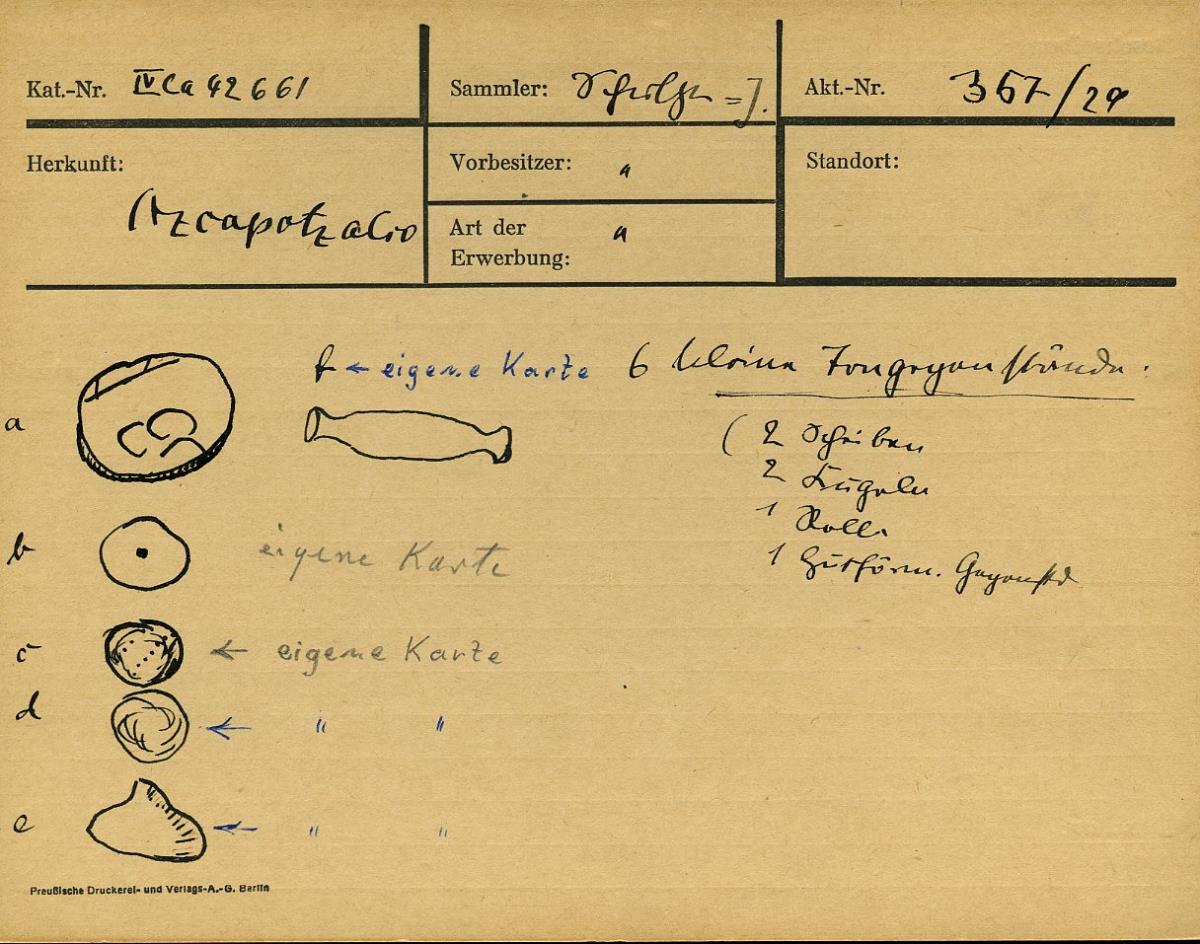 Kat.-Nr. IV Ca 42661
Sammler: Schulze=J.
Akt.-Nr. 367/29
Herkunft:
Azcapotzalco
Vorbesitzer: "
Art der "
Erwerbung:
Standort:
f ← eigene Karte
6 kleine Tongegenstände.
a
(2 Scheiben
2 Kugeln
1 Rolle
1 hutförm. Gegenstd
b eigene Karte
c ← eigene Karte
d ← " "
e ← " "
Preußische Druckerei- und Verlags-A.-G. Berlin